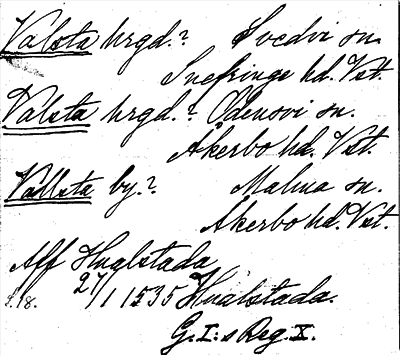 Valsta hrgd.? Svedvi sn.
Snefringe hd. Vst.
Valsta hrgd.? Odensvi sn.
Åkerbo hd. Vst.
Vallsta by.? Malma sn.
Åkerbo hd. Vst.
Aff Hualstada
27/1 1535 Hualstada.
G. I:s Reg. X.